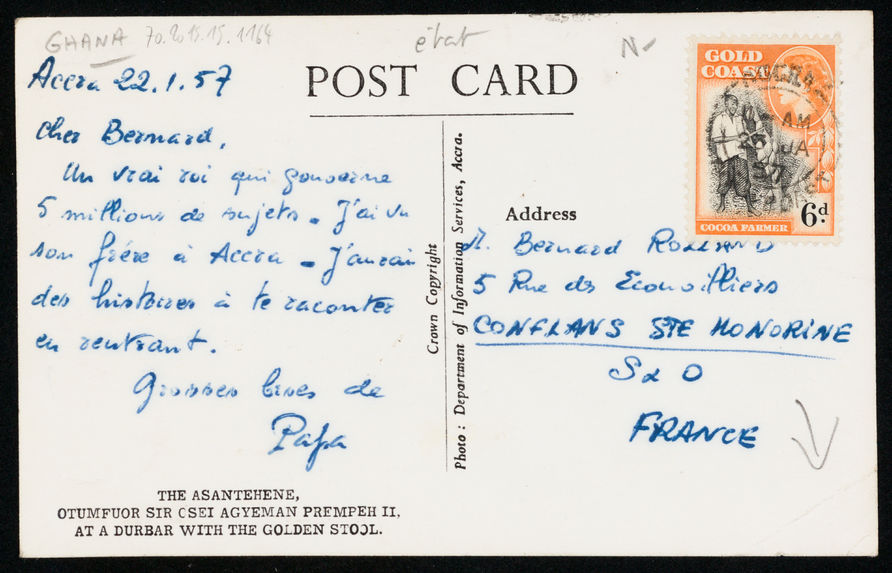 GHANA 70.2015.15.1.1164
état
N
Accra 22.1.57
POST CARD
Cher Bernard,
Un vrai roi qui gouverne
5 millions de sujets _ J'ai vu
son frère à Accra _ J'aurai
des histoires à te raconter
en rentrant.
Grosses bises de
Papa
THE ASANTEHENE,
OTUMFUOR SIR OSEI AGYEMAN PREMPEH II,
AT A DURBAR WITH THE GOLDEN STOOL.
Crown Copyright
Photo : Department of Information Services, Accra.
GOLD
COAST
AM
JA
57
6d
COCOA FARMER
Address
M. Bernard ROLLAND
5 Rue des
CONFLANS STE HONORINE
S & O
FRANCE